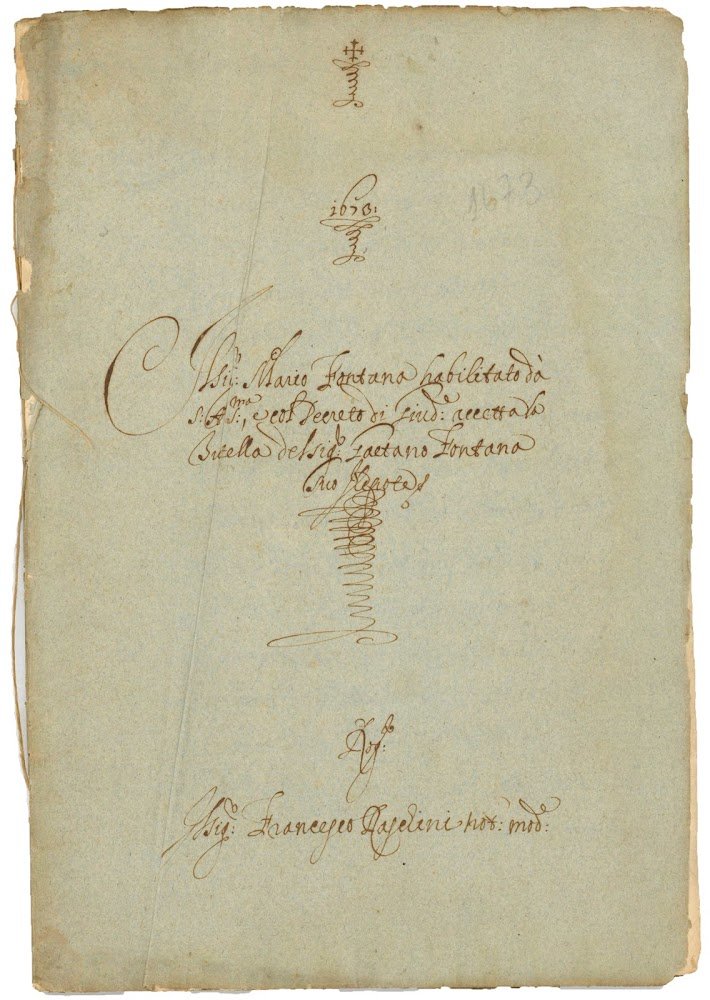 1673:
1673
Il Sig:r Mario Fontana habilitato dà
S: A: S:ma, e col Decreto di Giud:e accetta la
Tutella del Sig:r Gaetano Fontana
suo Nepote
Rog:o
Il Sig:r Francesco not: mod:e